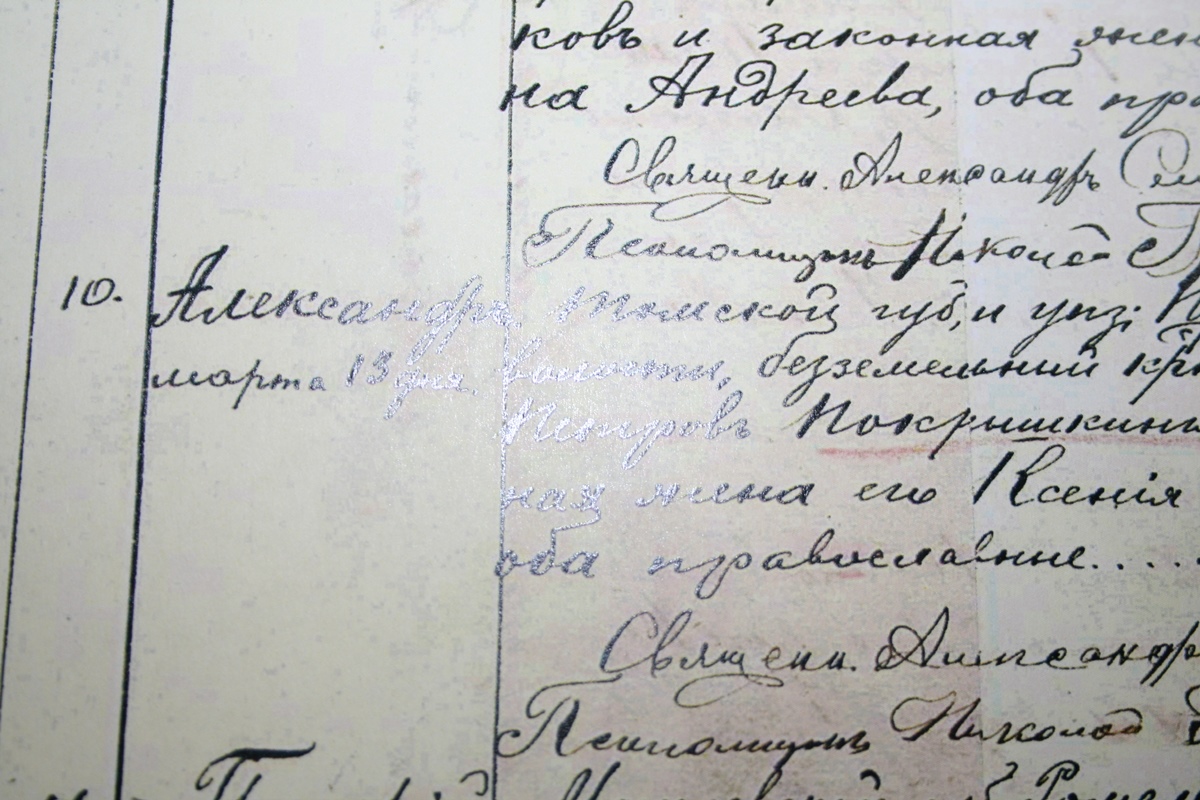 ковъ и законная жен
на Андреева, оба пр
Священ. Александръ
Псаломщикъ Николай
10. Александръ Томской губ, и уѣз:
марта 13 дня волости, безземельный кр
Петровъ Покрышкинъ
ная жена его Ксенія
оба православные.....
Священ. Александр
Псаломщикъ Николай